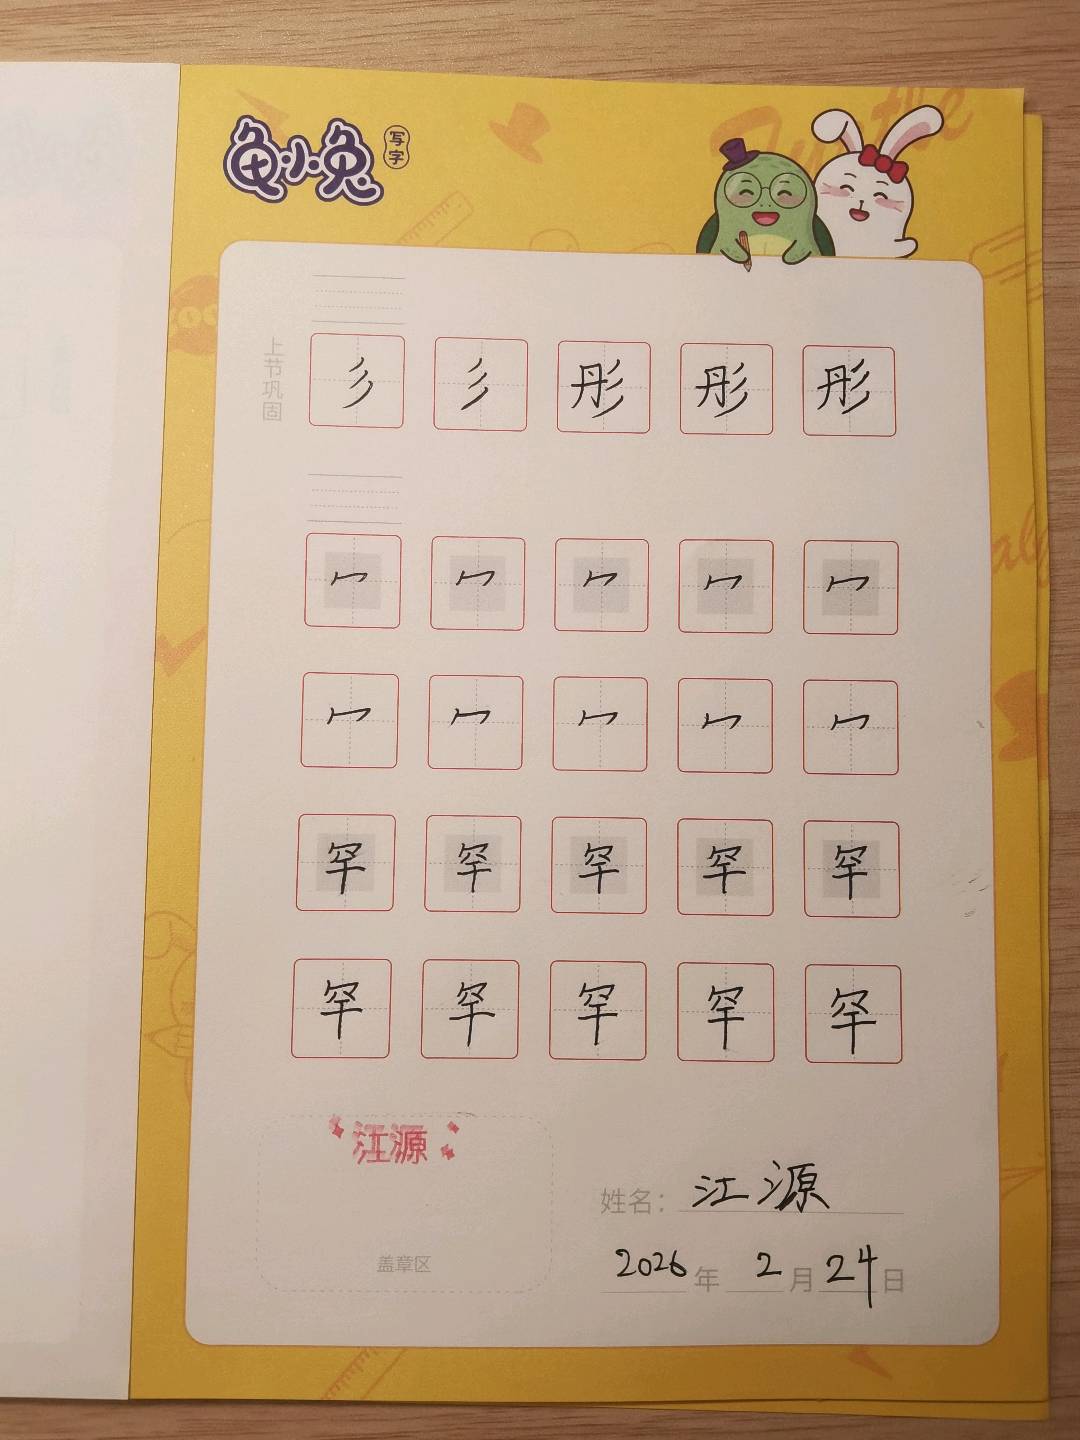 龟小兔
写字
上节巩固
彡 彡 彤 彤 彤
冖 冖 冖 冖 冖
冖 冖 冖 冖 冖
罕 罕 罕 罕 罕
罕 罕 罕 罕 罕
江源
盖章区
姓名：江源
2026年2月24日